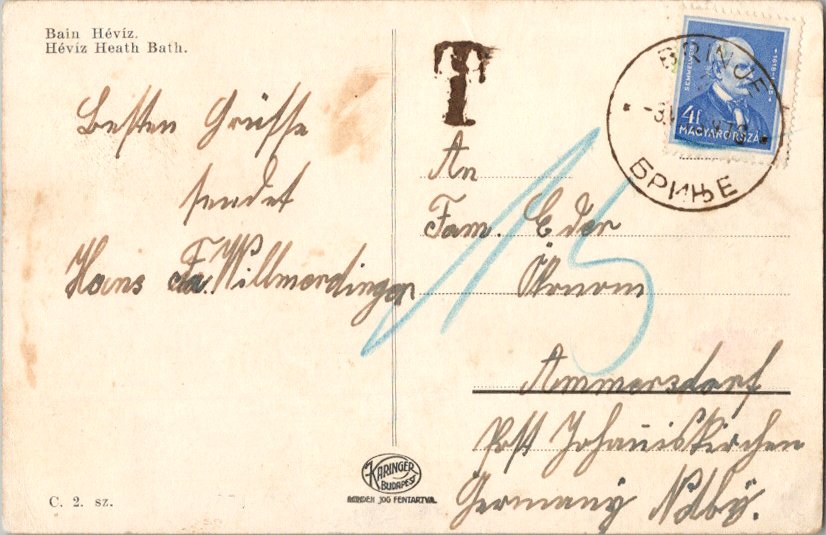 Bain Hévíz.
Hévíz Heath Bath.
Besten Grüsse
sendet
Hans Fa. Willmerdinger
C. 2. sz.
T
BRINJE
БРИЊЕ
SEMMELWEIS
40
MAGYARORSZÁG
15
An
Fam. Eder
Ökonom
Ammersdorf
Post Johanniskirchen
Germany Ndby.
KARINGER
BUDAPEST
MINDEN JOG FENTARTVA.